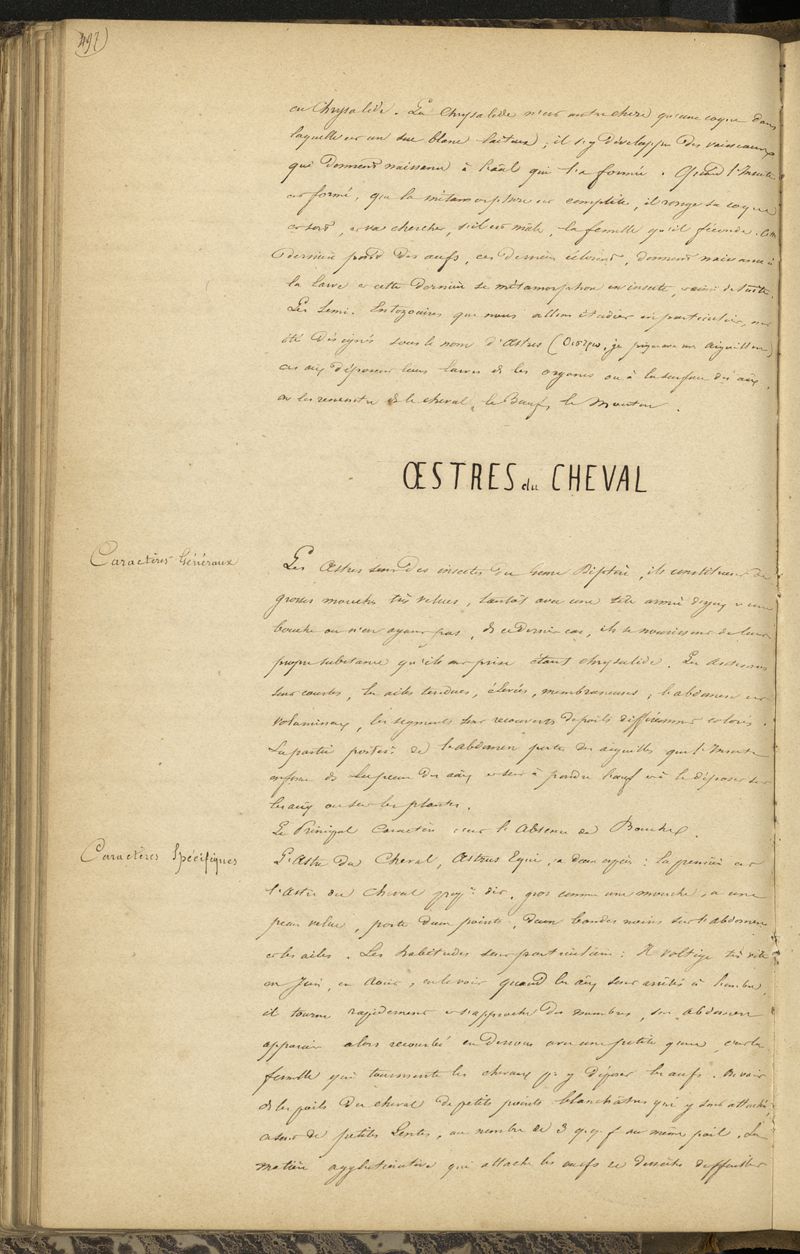 492
en Chrysalide. La Chrysalide n'est autre chose qu'une coque dans
laquelle est un suc blanc laiteux, il s'y développe des vaisseaux
qui donnent naissance à l'œil qui l'a formée. Quand l'Insecte
est formé, que la métamorphose est complète, il ronge sa coque
et sort, et va chercher, s'il est mâle, la femelle qu'il féconde. Cette
dernière pond des œufs, ces derniers éclosent, donnent naissance à
la larve et cette dernière se métamorphose en insecte, ainsi de suite.
Les Semi-Entozoaires que nous allons étudier en particulier, ont
été désignés sous le nom d'Œstres (je aiguillon)
ces aux déposent leurs larves ds les organes ou à la surface des aux,
on les rencontre ds le cheval, le Bœuf, le Mouton.
ŒSTRES du CHEVAL
Caractères Généraux
Les Œstres sont des insectes du Genre Diptère, ils constituent de
grosses mouches très velues, tantôt avec une tête armée d'yeux et une
bouche ou n'en ayant pas, ds ce dernier cas, ils se nourrissent de leur
propre substance qu'ils ont prise étant chrysalide. Les antennes
sont courtes, les ailes tendues, élevées, membraneuses, l'abdomen est
volumineux, les segments sont recouverts de poils différemment colorés.
La partie postérre de l'abdomen porte des aiguilles que l'Insecte
enfonce ds la peau des aux et sert à pondre l'œuf et à le déposer sur
les aux ou sur les plantes.
Le Principal Caractère est l'Absence de Bouche.
Caractères Spécifiques
L'Œstre du Cheval, Œstrus Equi, a deux espèces : la première est
l'Œstre du cheval propt dit, gros comme une mouche, a une
peau velue, porte deux points, deux bandes noires sur l'abdomen
et les ailes. Les habitudes sont particulières : Il voltige très vite
en Juin, en Août, on le voit quand les aux sont arrêtés à l'ombre,
il tourne rapidement et s'approche des membres, son abdomen
apparaît alors recourbé en dessous avec une petite queue, c'est la
femelle qui tourmente les chevaux pr y déposer les œufs. On voit
ds les poils du cheval de petits points blanchâtres qui y sont attachés,
ce sont de petites Lentes, au nombre de 3 qq. f. au même poil. La
matière agglutinative qui attache les œufs se dessèche difficilet